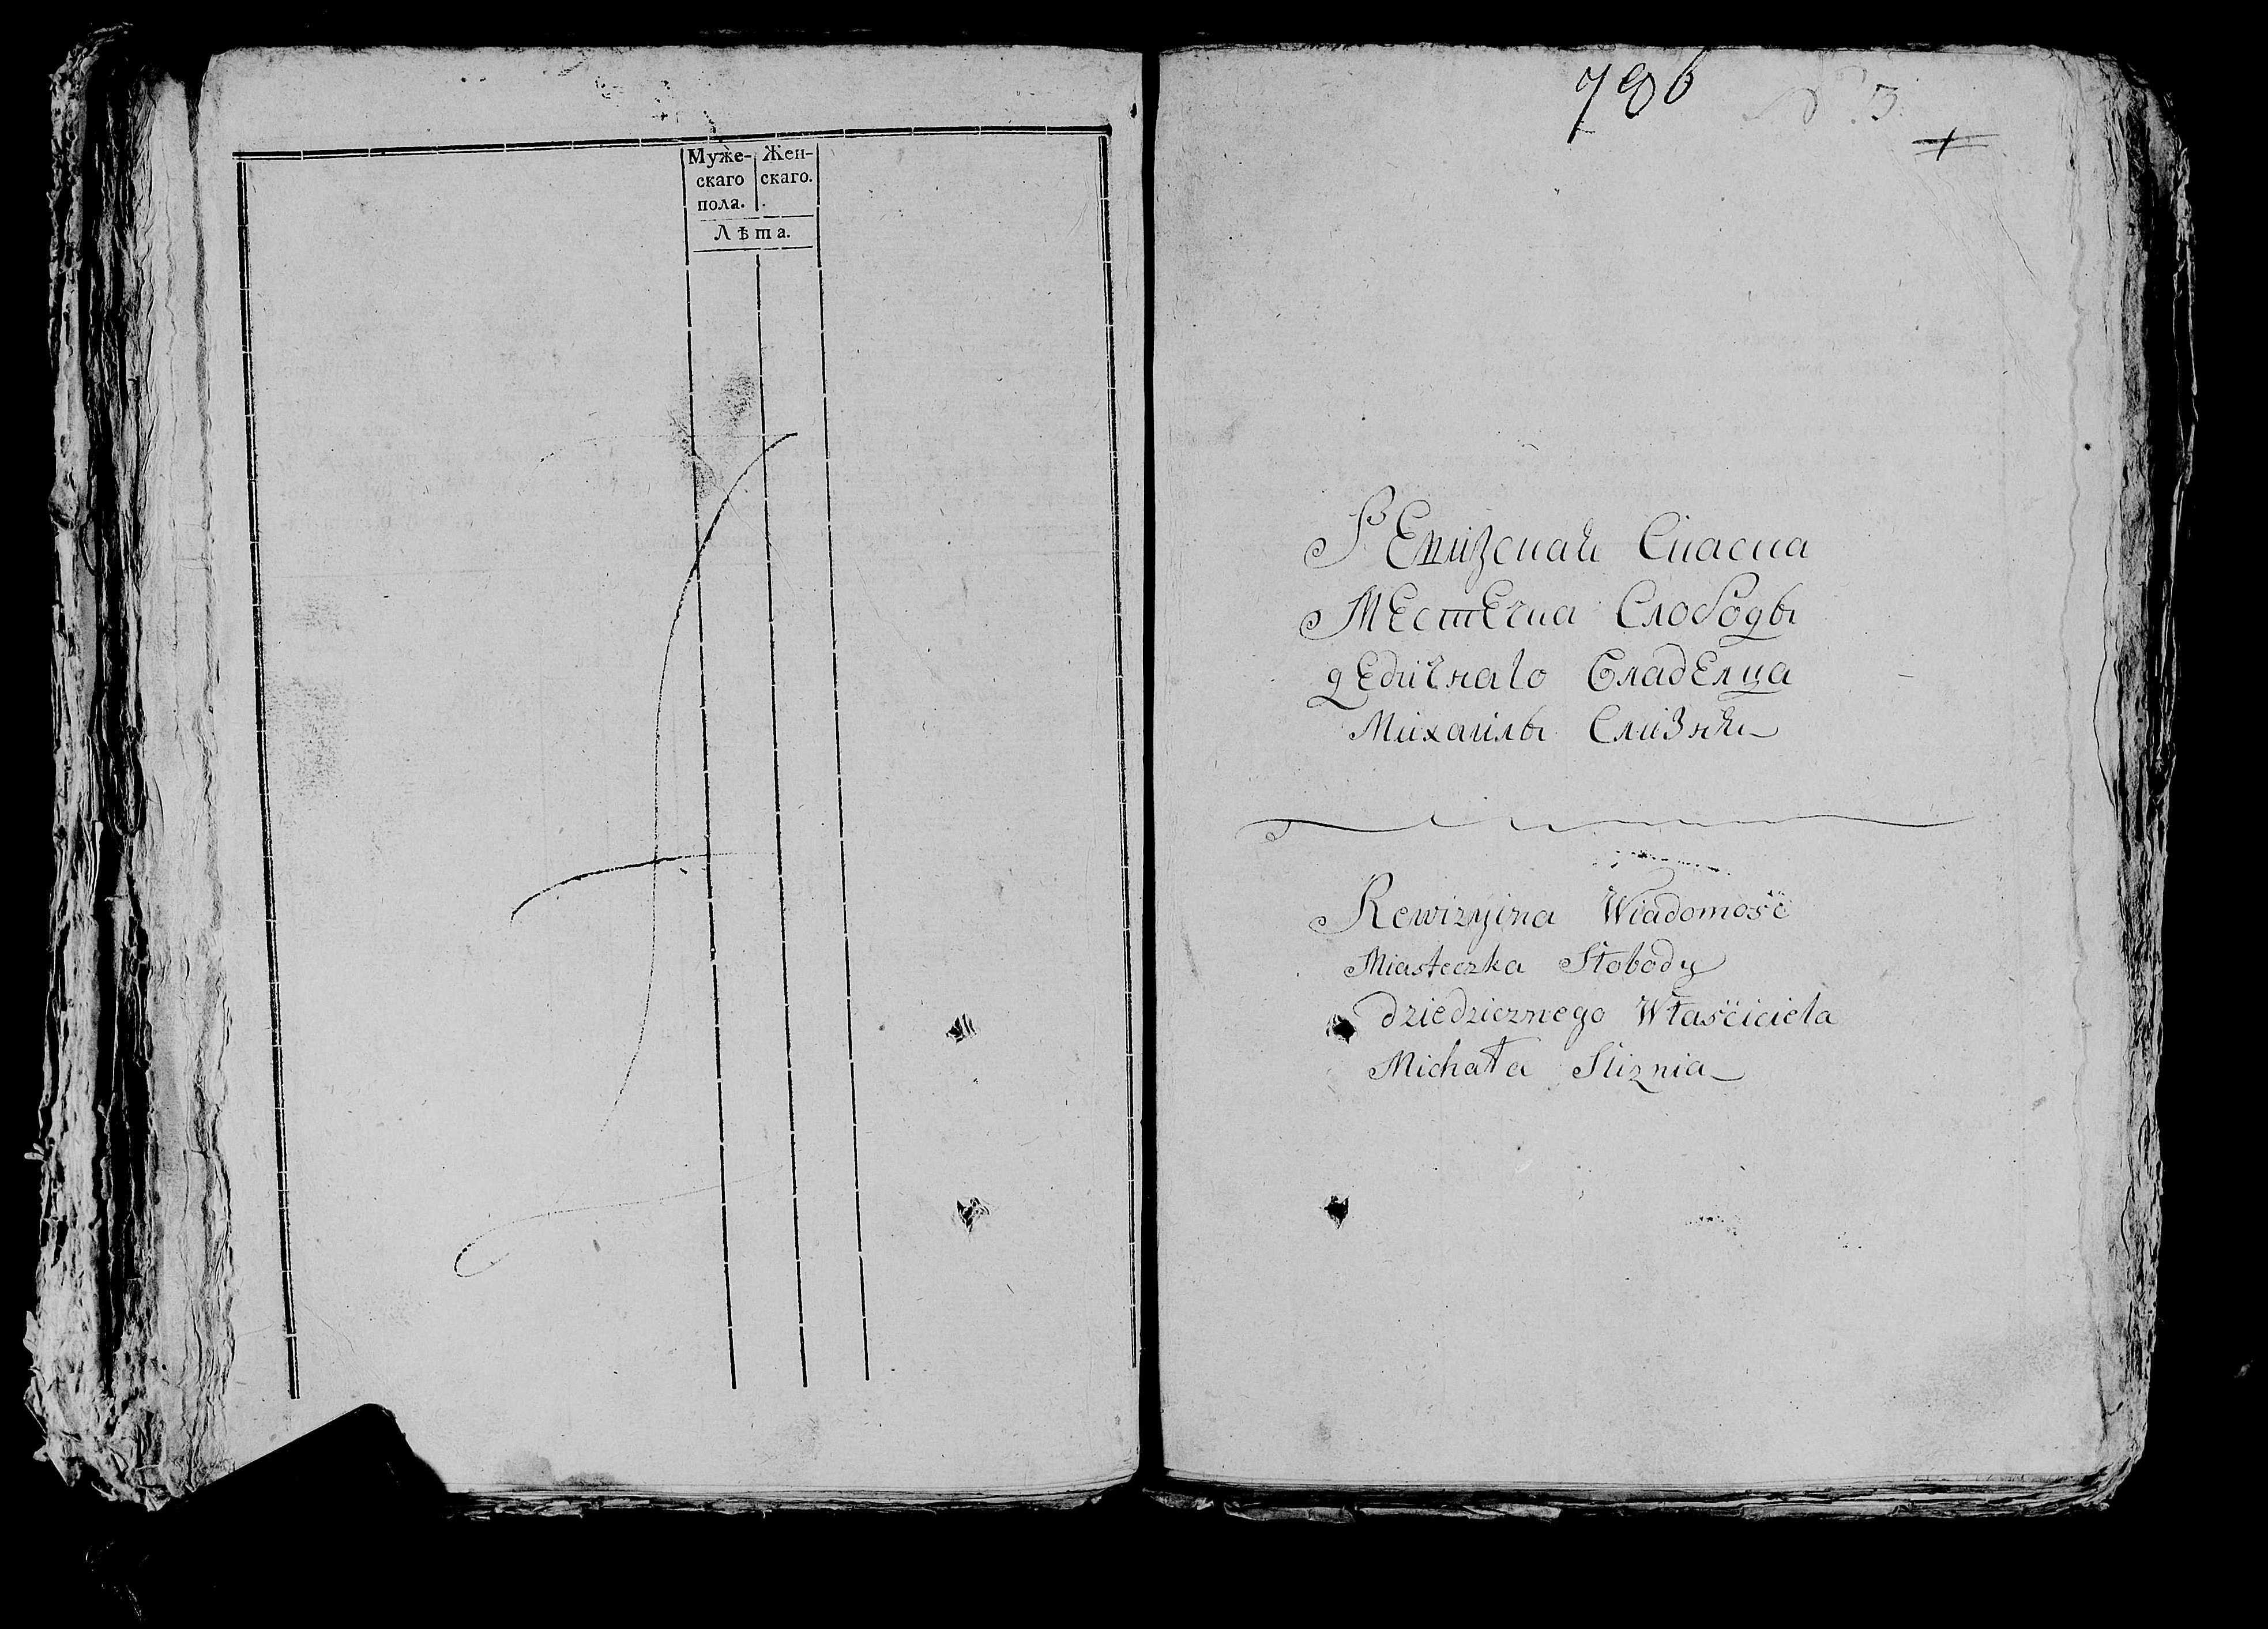 Муже-
скаго
пола.
Жен-
скаго.
Лѣта.
786
№ 3.
РЕвизскай Сказка
МЕстЕчка Слободы
дЕдичнаго ВладЕлца
Михаилы Слизня
Rewizyina Wiadomość
Miasteczka Słobody
dziedzicznego Właściciela
Michała Sliznia